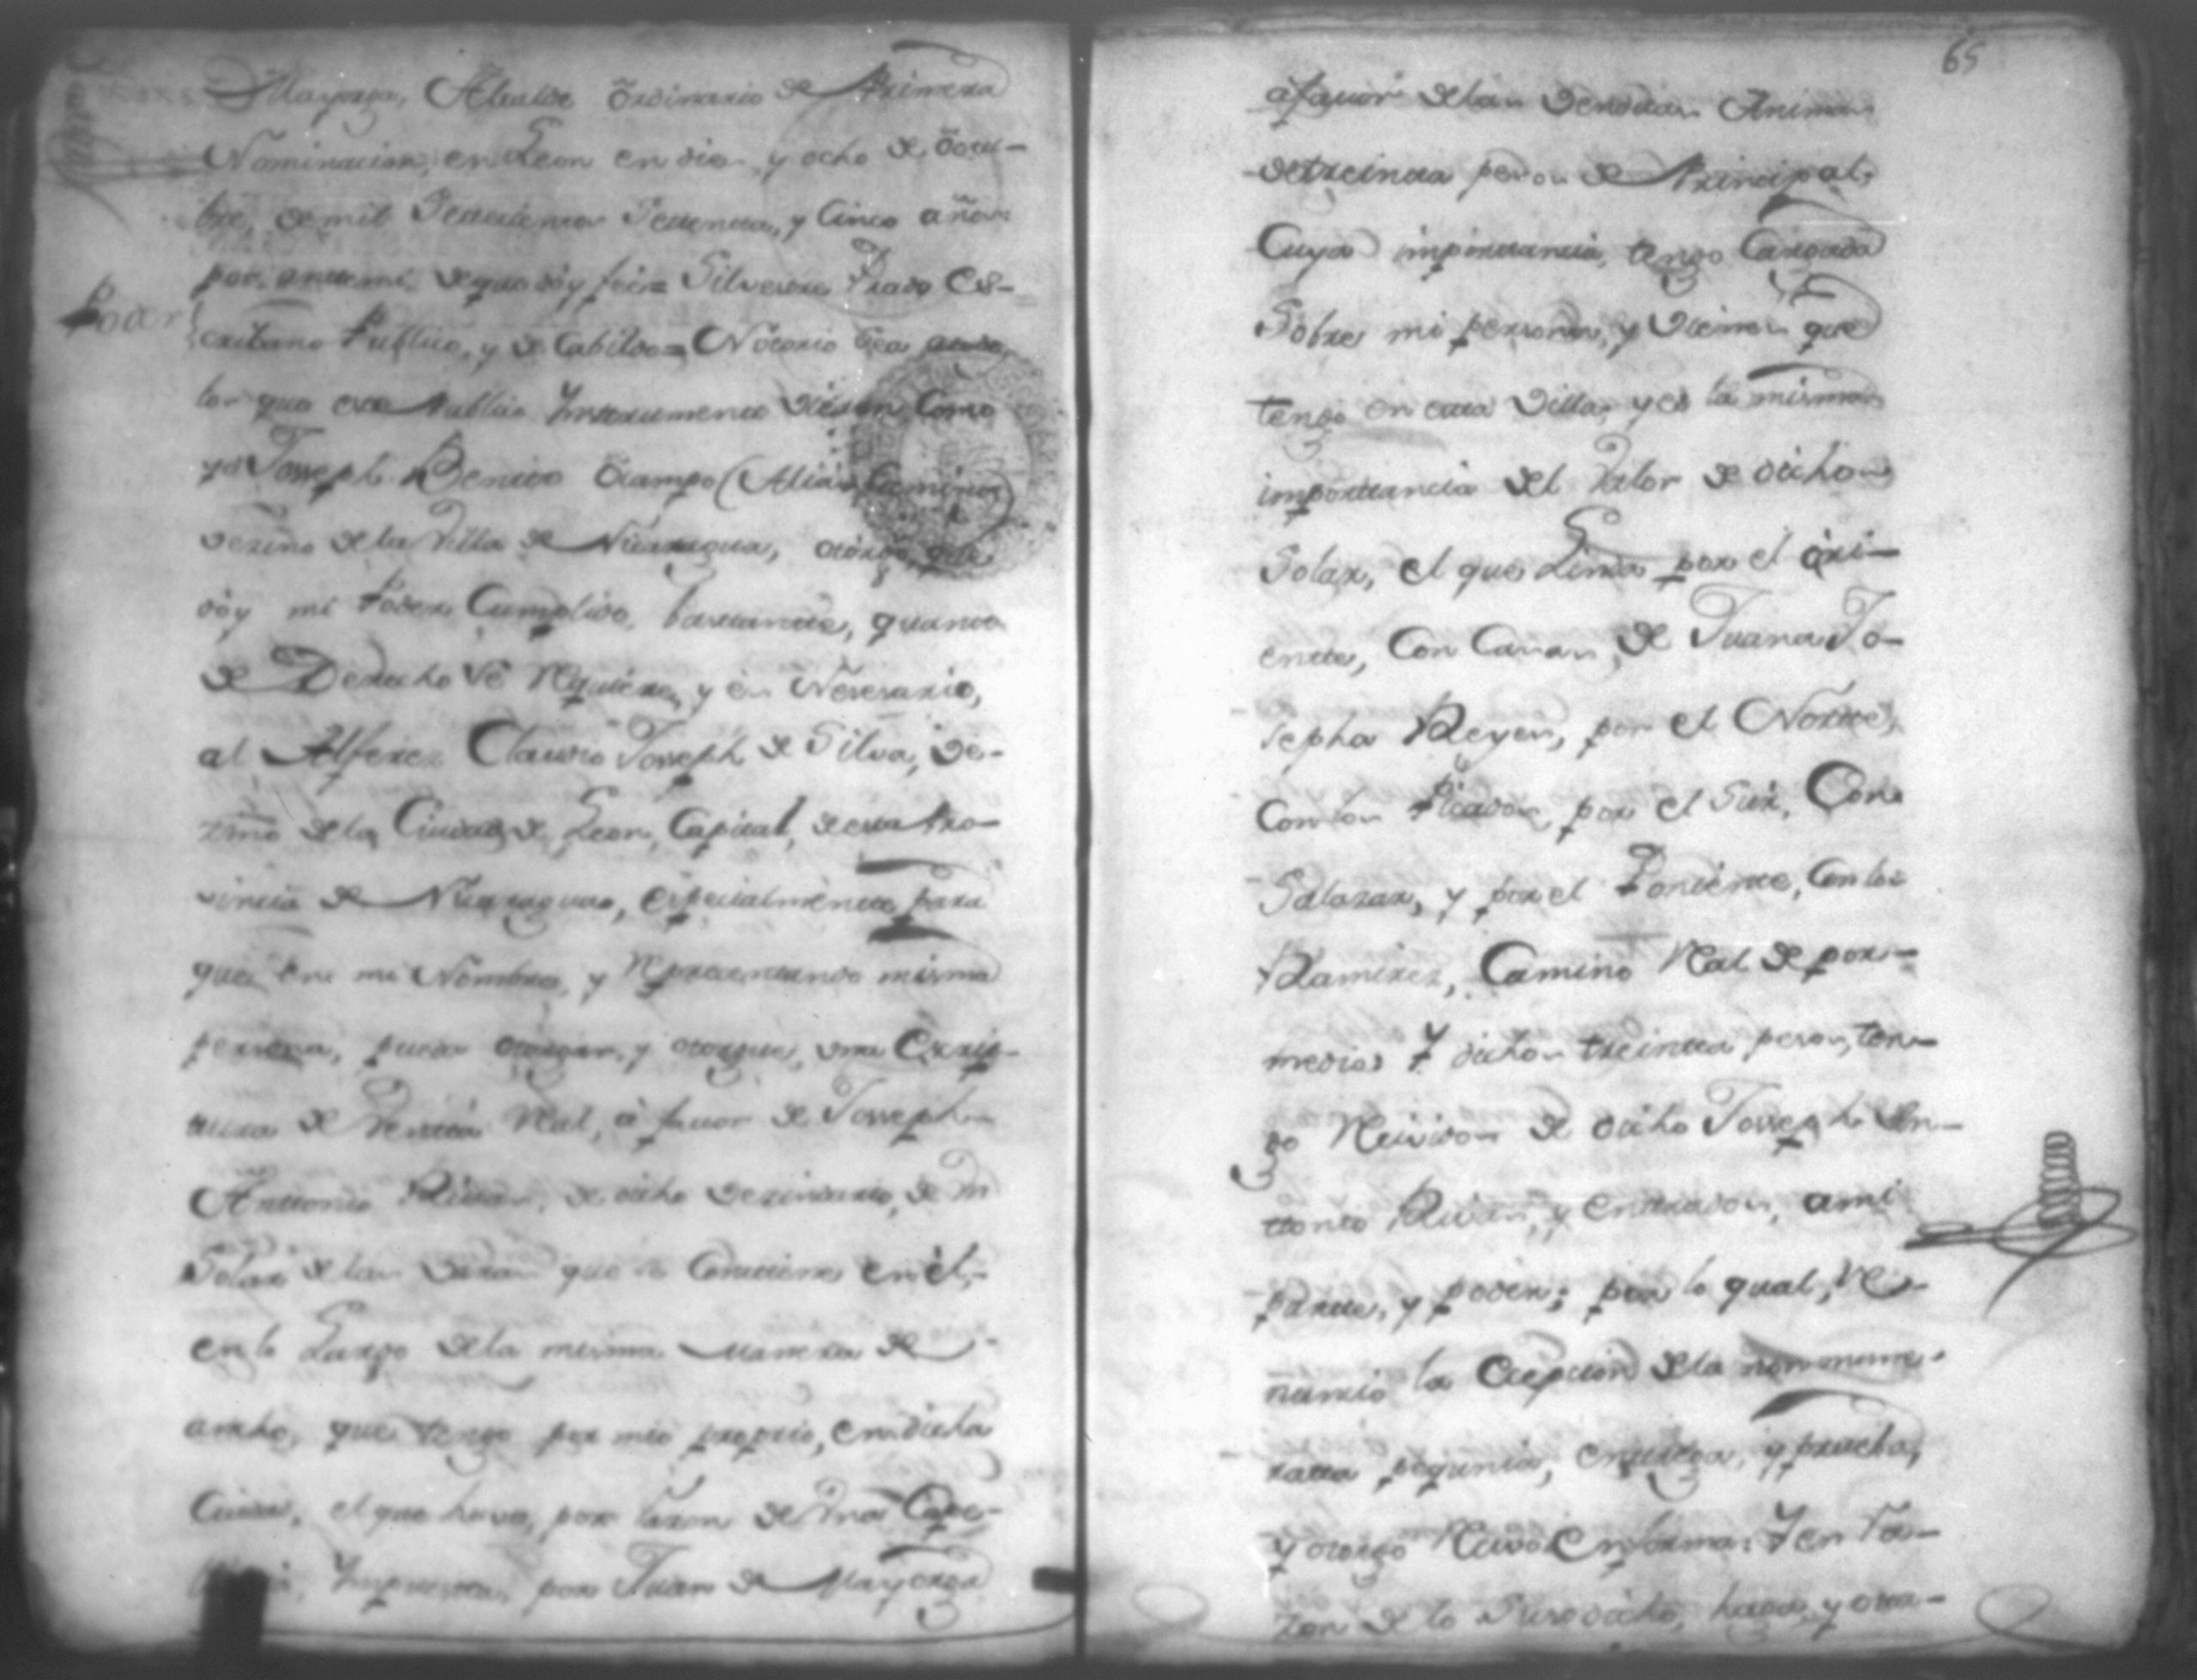 Mayorga, Alcalde ordinario de Primera
Nominacion, en Leon en dies y ocho de octu-
bre, de mil Settecientos Settenta, y Cinco años
por antte mi de que doy fee= Silvestre Prado Es-
Poder
cribano Publico, y de Cabildo= Nótorio sea a todos
los que este Publico Ynstrumento vieren Como
yo Josseph Benito Ocampo (Alias Caminos)
vezino de la Villa de Nicaragua, otorgo que
doy mi Poder Cumplido, basttante, quanto
de Derecho se Rquiere, y es Nesesario,
al Alferez Claudio Josseph de Silva, Ve-
zino de la Ciudad de Leon, Capital, de esta Pro-
vincia de Nicaragua, especialmente para
que en mi Nombre, y Rpresentando misma
persona, pueda otorgar, y otorgue, una Escrip-
tura de Ventta Rl, à favor de Josseph
Anttonio Rivas, de dicho vezindario, de un
Solar de las Varas que se Contiene en él,
en lo Largo de la misma manera de
ancho, que tengo por mio proprio, en dicha
el que huve, por razon de Una Cape-
Ympuesta, por Juan de Mayorga
65
à favor de las Venditas Animas
de treinta pesos de Principal,
Cuya importtancia, tengo Cargada
Sobre mi persona, y Vienes que
tengo en esta Villa, y es la misma
importtancia del Valor de dicho
Solar, el que Linda por el òri-
ente, Con Casas, de Juana Jo-
sepha Reyes, por el Norte,
Con los Picados, por el Sur, Con
Salazar, y por el Poniente, Con los
Ramirez, Camino Real de por
medio: Y dichos treinta pesos, ten-
go Resividos de dicho Josseph An-
ttonio Rivas, y entrados, a mi
partte, y poder; por lo qual, Re-
nuncio la Ecepcion de la non nume-
ratta pequnia, entrega, y prueba,
y otorgo Recivo En forma: Y en ra-
zon de lo Susodicho, haga, y otor-